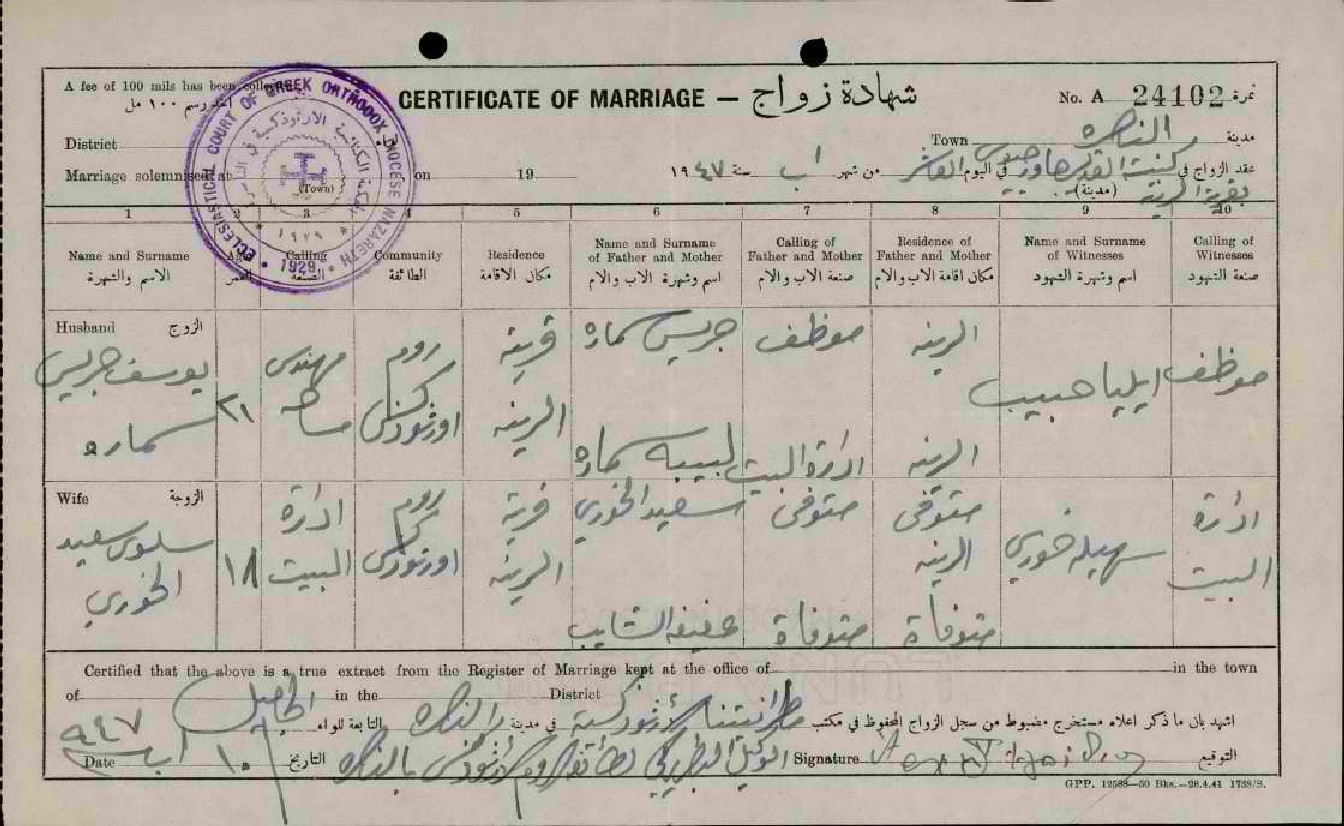 A fee of 100 mils has been
CERTIFICATE OF MARRIAGE — شهادة زواج
No. A 24102 نمرة
ECLESIASTICAL COURT OF GREEK ORTHODOX DIOCESE NAZARETH
• 1929 •
* ١٩٢٩ *
District
Town الناصره مدينة
Marriage solemnised at (Town) on 19
عقد الزواج في في اليوم العاشر من شهر اب سنة ١٩٤٧
بقرية الرينة (مدينة)
1 2 3 4 5 6 7 8 9 10
Name and Surname الاسم والشهرة
Age العمر
Calling الصنعة
Community الطائفة
Residence مكان الاقامة
Name and Surname of Father and Mother اسم وشهرة الاب والام
Calling of Father and Mother صنعة الاب والام
Residence of Father and Mother مكان اقامة الاب والام
Name and Surname of Witnesses اسم وشهرة الشهود
Calling of Witnesses صنعة الشهود
Husband الزوج
يوسف جريس
سماره
٢١
مهندس
مساحه
روم
اورثوذكس
قرية
الرينه
جريس سماره
موظف
الرينه
لبيبه سماره
ادارة البيت
الرينه
ايليا حبيب
موظف
Wife الزوجة
سلوى سعيد
الخوري
١٨
ادارة
البيت
روم
اورثوذكس
قرية
الرينه
سعيد الخوري
متوفى
متوفى
الرينه
عفيفه الشايب
متوفاة
متوفاة
سهيله خوري
ادارة
البيت
Certified that the above is a true extract from the Register of Marriage kept at the office of in the town
of in the District
اشهد بان ما ذكر اعلاه مستخرج مضبوط من سجل الزواج المحفوظ في مكتب في مدينة الناصره التابعة للواء الجليل
Date ١٠ اب ٩٤٧ التاريخ
Signature التوقيع
GPP. 12588—50 Bks.—28.4.41 1738/S.